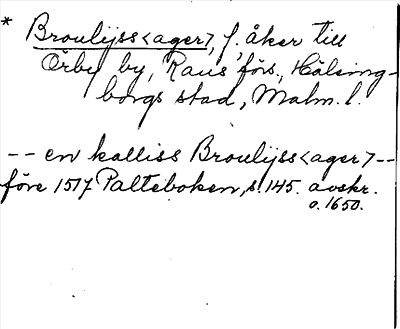 * Broulijss<ager>, f. åker till
Örby by, Raus förs., Hälsing-
borgs stad, Malm. l.
-- en kalliss Broulijss<ager> --
före 1517 Palteboken, s. 145. avskr.
o. 1650.